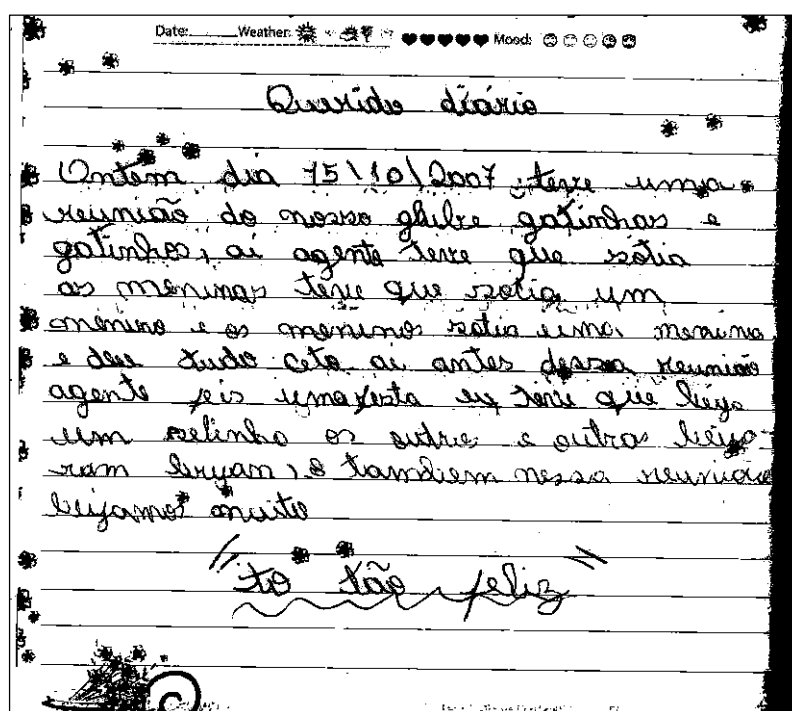 Date: Weather: Mood:
Querido diário
Ontem dia 15\10\2007 teve uma
reunião do nosso glube gatinhas e
gatinhos, ai agente teve que sotia
as meninas teve que sotia um
menino e os meninos sotia uma menina
e deu tudo ceto ai antes dessa reunião
agente fis uma festa eu teve que beija
um selinho os outros e outras beija-
ram bryan, e tambem nessa reunião
beijamos muito
"to tão feliz"